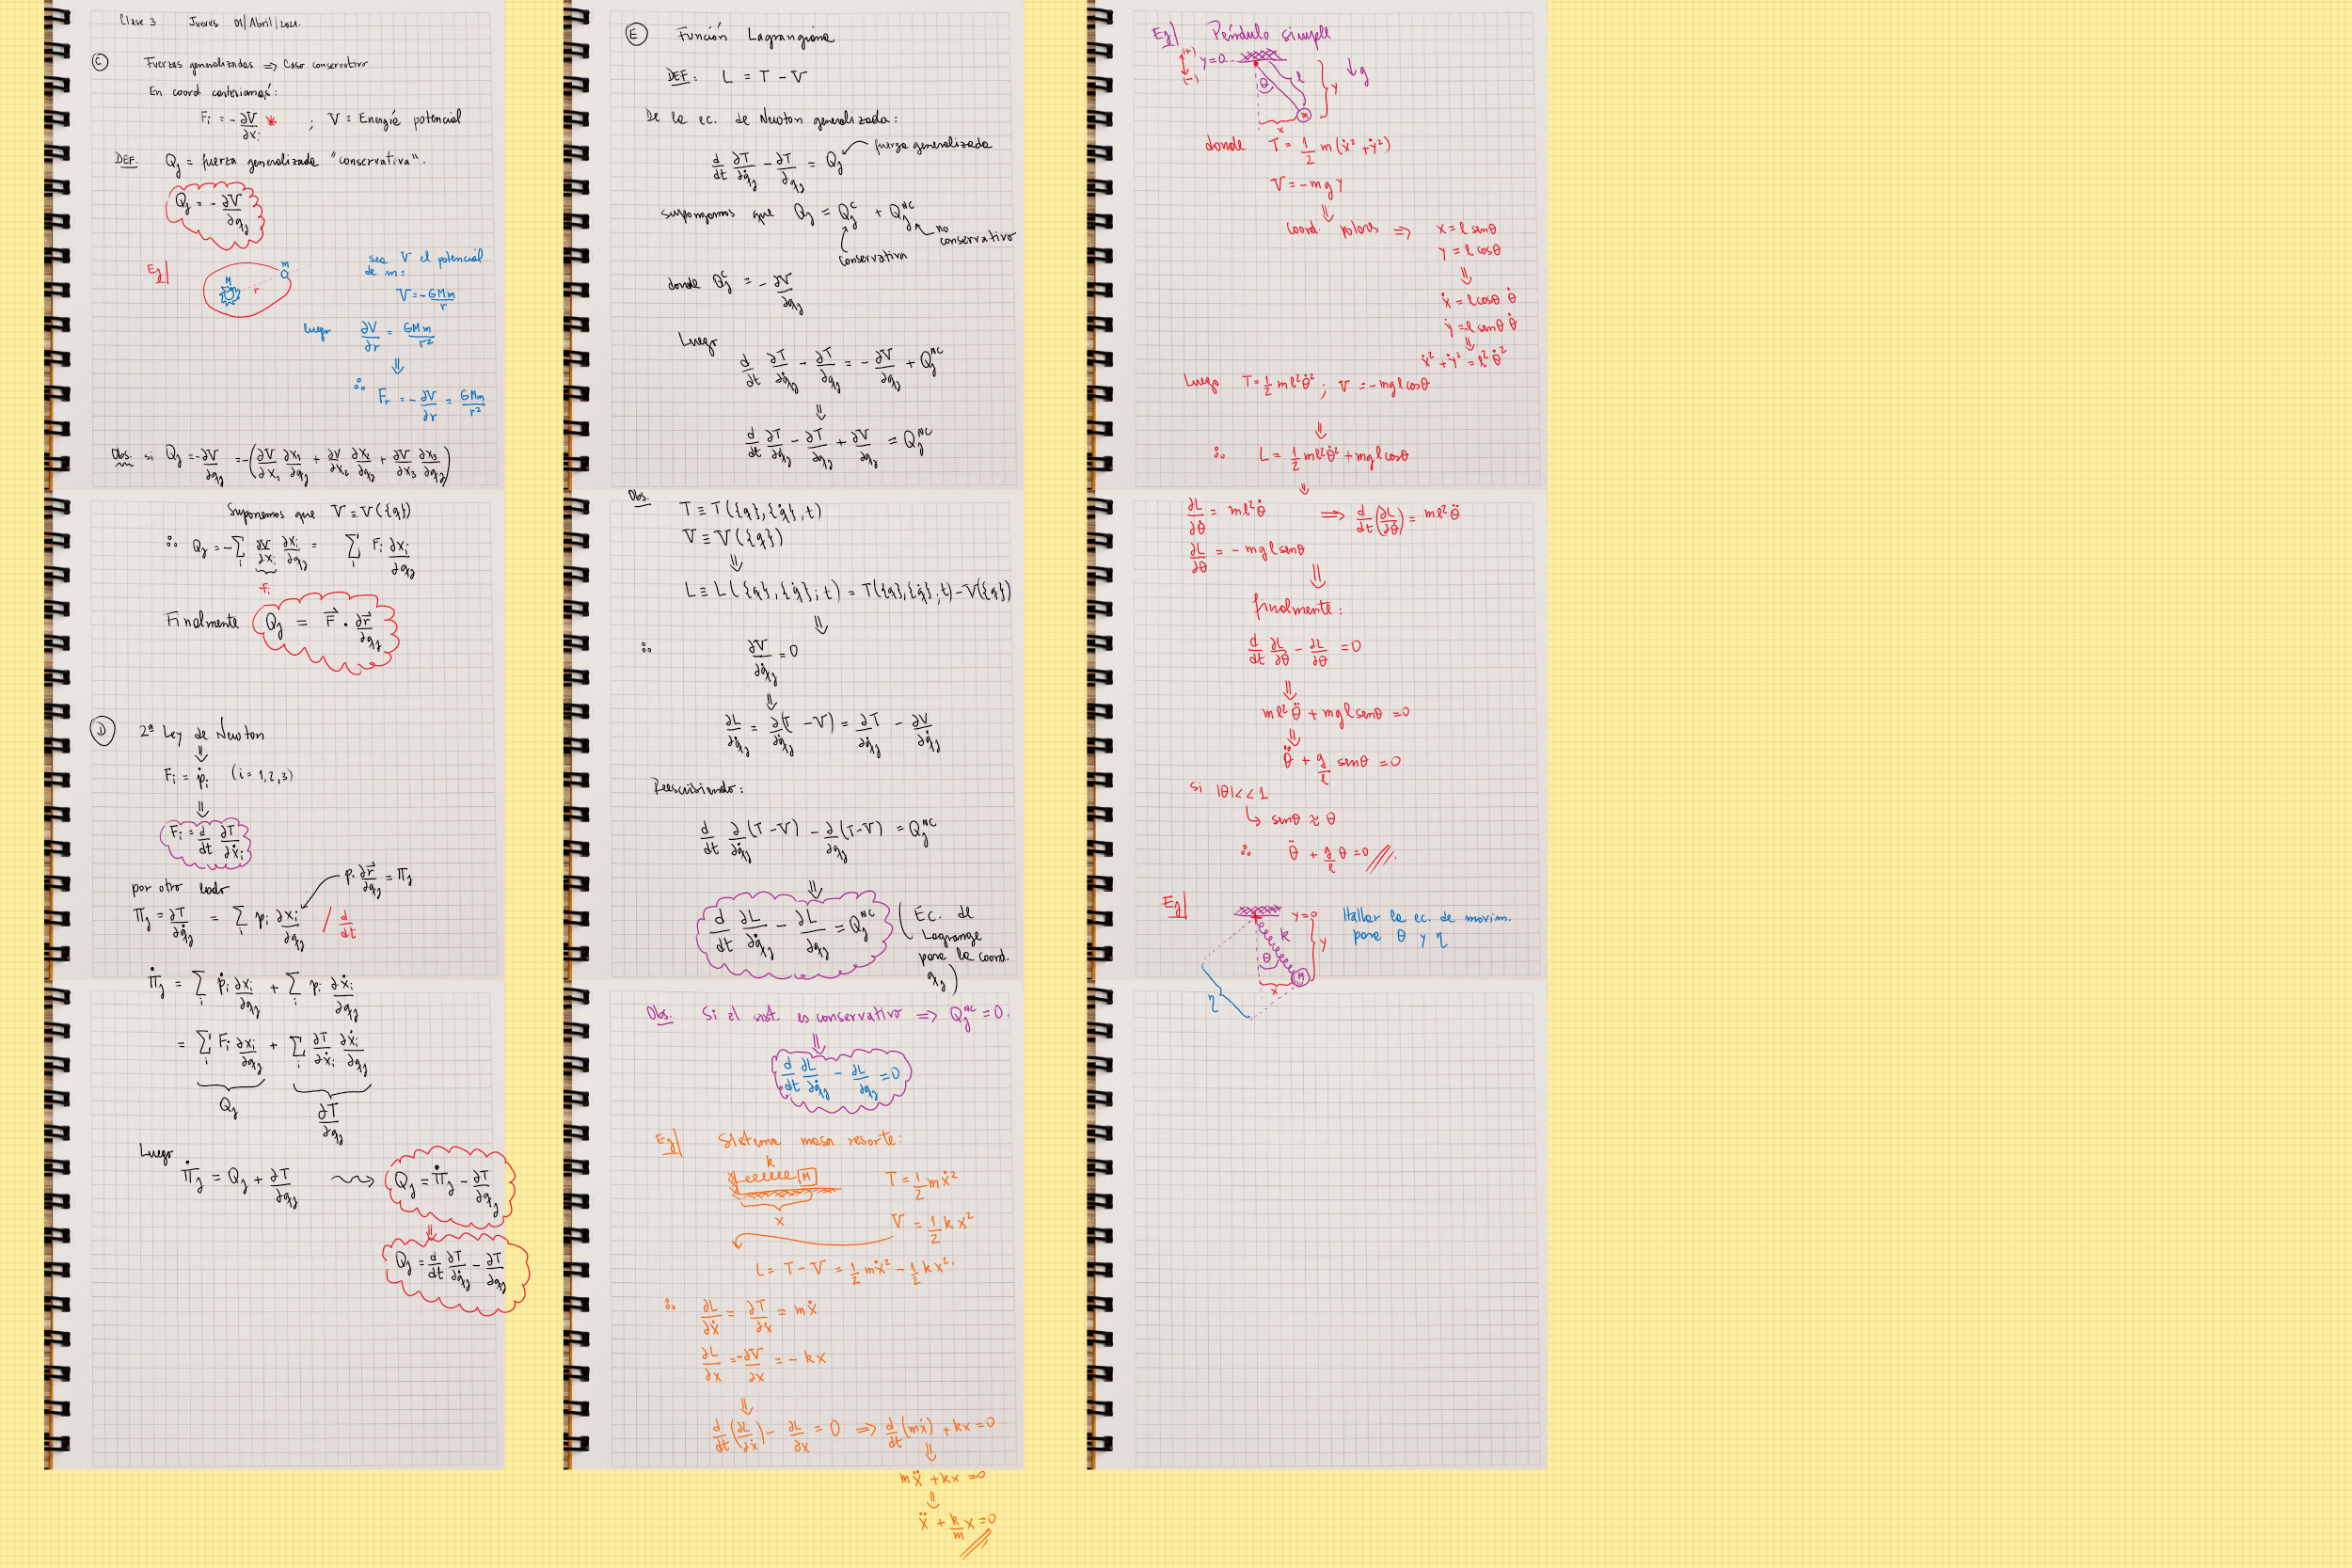 Clase 3 Jueves 01/Abril/2021.
Ⓒ Fuerzas generalizadas ⇒ Caso conservativo
En coord cartesianas:
F_i = -∂V/∂x_i * ; V = Energía potencial
DEF. Q_j = fuerza generalizada "conservativa".
Q_j = -∂V/∂q_j
Ej|
M r m
sea V el potencial
de m:
V = -GMm/r
luego ∂V/∂r = GMm/r²
⇓
∴ F_r = -∂V/∂r = GMm/r²
Obs. si Q_j = -∂V/∂q_j = -(∂V/∂x₁ ∂x₁/∂q_j + ∂V/∂x₂ ∂x₂/∂q_j + ∂V/∂x₃ ∂x₃/∂q_j)
Suponemos que V = V({q})
∴ Q_j = -∑_i ∂V/∂x_i ∂x_i/∂q_j = ∑_i F_i ∂x_i/∂q_j
-F_i
Finalmente Q_j = F⃗ · ∂r⃗/∂q_j
Ⓓ 2ª Ley de Newton
⇓
F_i = ṗ_i (i = 1,2,3)
⇓
F_i = d/dt ∂T/∂ẋ_i
por otro lado
p·∂r⃗/∂q_j = Π_j
Π_j = ∂T/∂q̇_j = ∑_i p_i ∂x_i/∂q_j / d/dt
Π̇_j = ∑_i ṗ_i ∂x_i/∂q_j + ∑_i p_i ∂ẋ_i/∂q_j
= ∑_i F_i ∂x_i/∂q_j + ∑_i ∂T/∂ẋ_i ∂ẋ_i/∂q_j
Q_j ∂T/∂q_j
Luego
Π̇_j = Q_j + ∂T/∂q_j ⇝ Q_j = Π̇_j - ∂T/∂q_j
⇓
Q_j = d/dt ∂T/∂q̇_j - ∂T/∂q_j
Ⓔ Función Lagrangiana
DEF: L = T - V
De la ec. de Newton generalizada:
d/dt ∂T/∂q̇_j - ∂T/∂q_j = Q_j fuerza generalizada
supongamos que Q_j = Q_j^C + Q_j^NC
no
conservativo
conservativa
donde Q_j^C = -∂V/∂q_j
Luego
d/dt ∂T/∂q̇_j - ∂T/∂q_j = -∂V/∂q_j + Q_j^NC
⇓
d/dt ∂T/∂q̇_j - ∂T/∂q_j + ∂V/∂q_j = Q_j^NC
Obs.
T ≡ T({q},{q̇},t)
V ≡ V({q})
⇓
L ≡ L({q},{q̇};t) = T({q},{q̇};t) - V({q})
⇓
∴ ∂V/∂q̇_j = 0
⇓
∂L/∂q̇_j = ∂/∂q̇_j (T - V) = ∂T/∂q̇_j - ∂V/∂q̇_j
Reescribiendo:
d/dt ∂/∂q̇_j (T-V) - ∂/∂q_j (T-V) = Q_j^NC
⇓
d/dt ∂L/∂q̇_j - ∂L/∂q_j = Q_j^NC
(Ec. de
Lagrange
para la coord.
q_j)
Obs. Si el sist. es conservativo ⇒ Q_j^NC = 0.
⇓
d/dt ∂L/∂q̇_j - ∂L/∂q_j = 0
Ej| Sistema masa resorte:
k M
x
T = 1/2 mẋ²
V = 1/2 k x²
L = T - V = 1/2 mẋ² - 1/2 k x².
∴ ∂L/∂ẋ = ∂T/∂ẋ = mẋ
∂L/∂x = -∂V/∂x = -kx
⇓
d/dt (∂L/∂ẋ) - ∂L/∂x = 0 ⇒ d/dt (mẋ) + kx = 0
⇓
mẍ + kx = 0
⇓
ẍ + k/m x = 0
Ej| Péndulo simple
(+)
(-)
y=0
θ l y ↓g
m
x
donde T = 1/2 m(ẋ² + ẏ²)
V = -mgy
⇓
coord. polares ⇒ x = l senθ
y = l cosθ
⇓
ẋ = l cosθ θ̇
ẏ = -l senθ θ̇
⇓
ẋ² + ẏ² = l² θ̇²
Luego T = 1/2 ml²θ̇² ; V = -mgl cosθ
⇓
∴ L = 1/2 ml²θ̇² + mgl cosθ
⇓
∂L/∂θ̇ = ml²θ̇ ⇒ d/dt (∂L/∂θ̇) = ml²θ̈
∂L/∂θ = -mgl senθ
⇓
finalmente:
d/dt ∂L/∂θ̇ - ∂L/∂θ = 0
⇓
ml²θ̈ + mgl senθ = 0
⇓
θ̈ + g/l senθ = 0
si |θ| << 1
↳ senθ ≈ θ
∴ θ̈ + g/l θ = 0
Ej|
y=0
k y
θ
M
x
η
Hallar la ec. de movim.
para θ y η